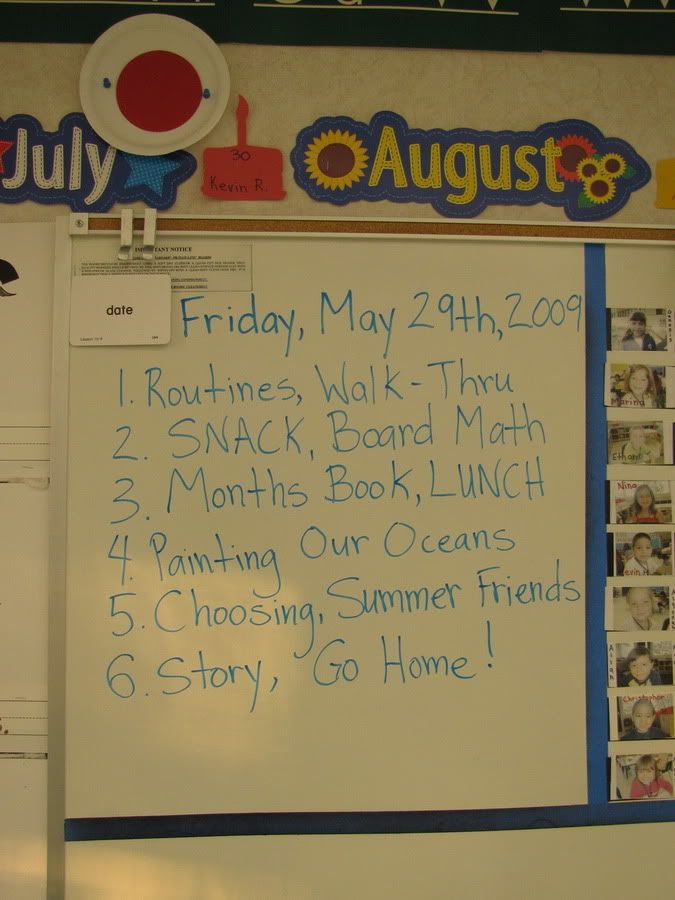 July
30
Kevin R.
August
IMPORTANT NOTICE
date
Friday, May 29th, 2009
1. Routines, Walk-Thru
2. SNACK, Board Math
3. Months Book, LUNCH
4. Painting Our Oceans
5. Choosing, Summer Friends
6. Story, Go Home!
Marina
Ethan
Nina
Kevin R.
Christopher